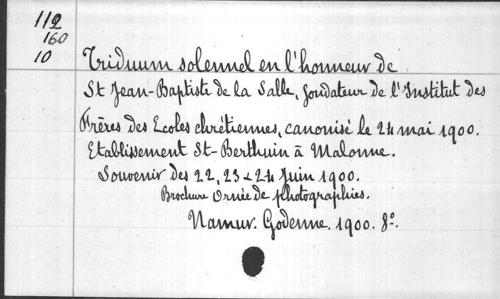 112
160
10
Triduum solennel en l'honneur de
St Jean-Baptiste de la Salle, fondateur de l'Institut des
Frères des Ecoles chrétiennes, canonisé le 24 mai 1900.
Etablissement St-Berthuin à Malonne.
Souvenir des 22, 23 & 24 Juin 1900.
Brochure Ornée de photographies.
Namur. Godenne. 1900. 8º.